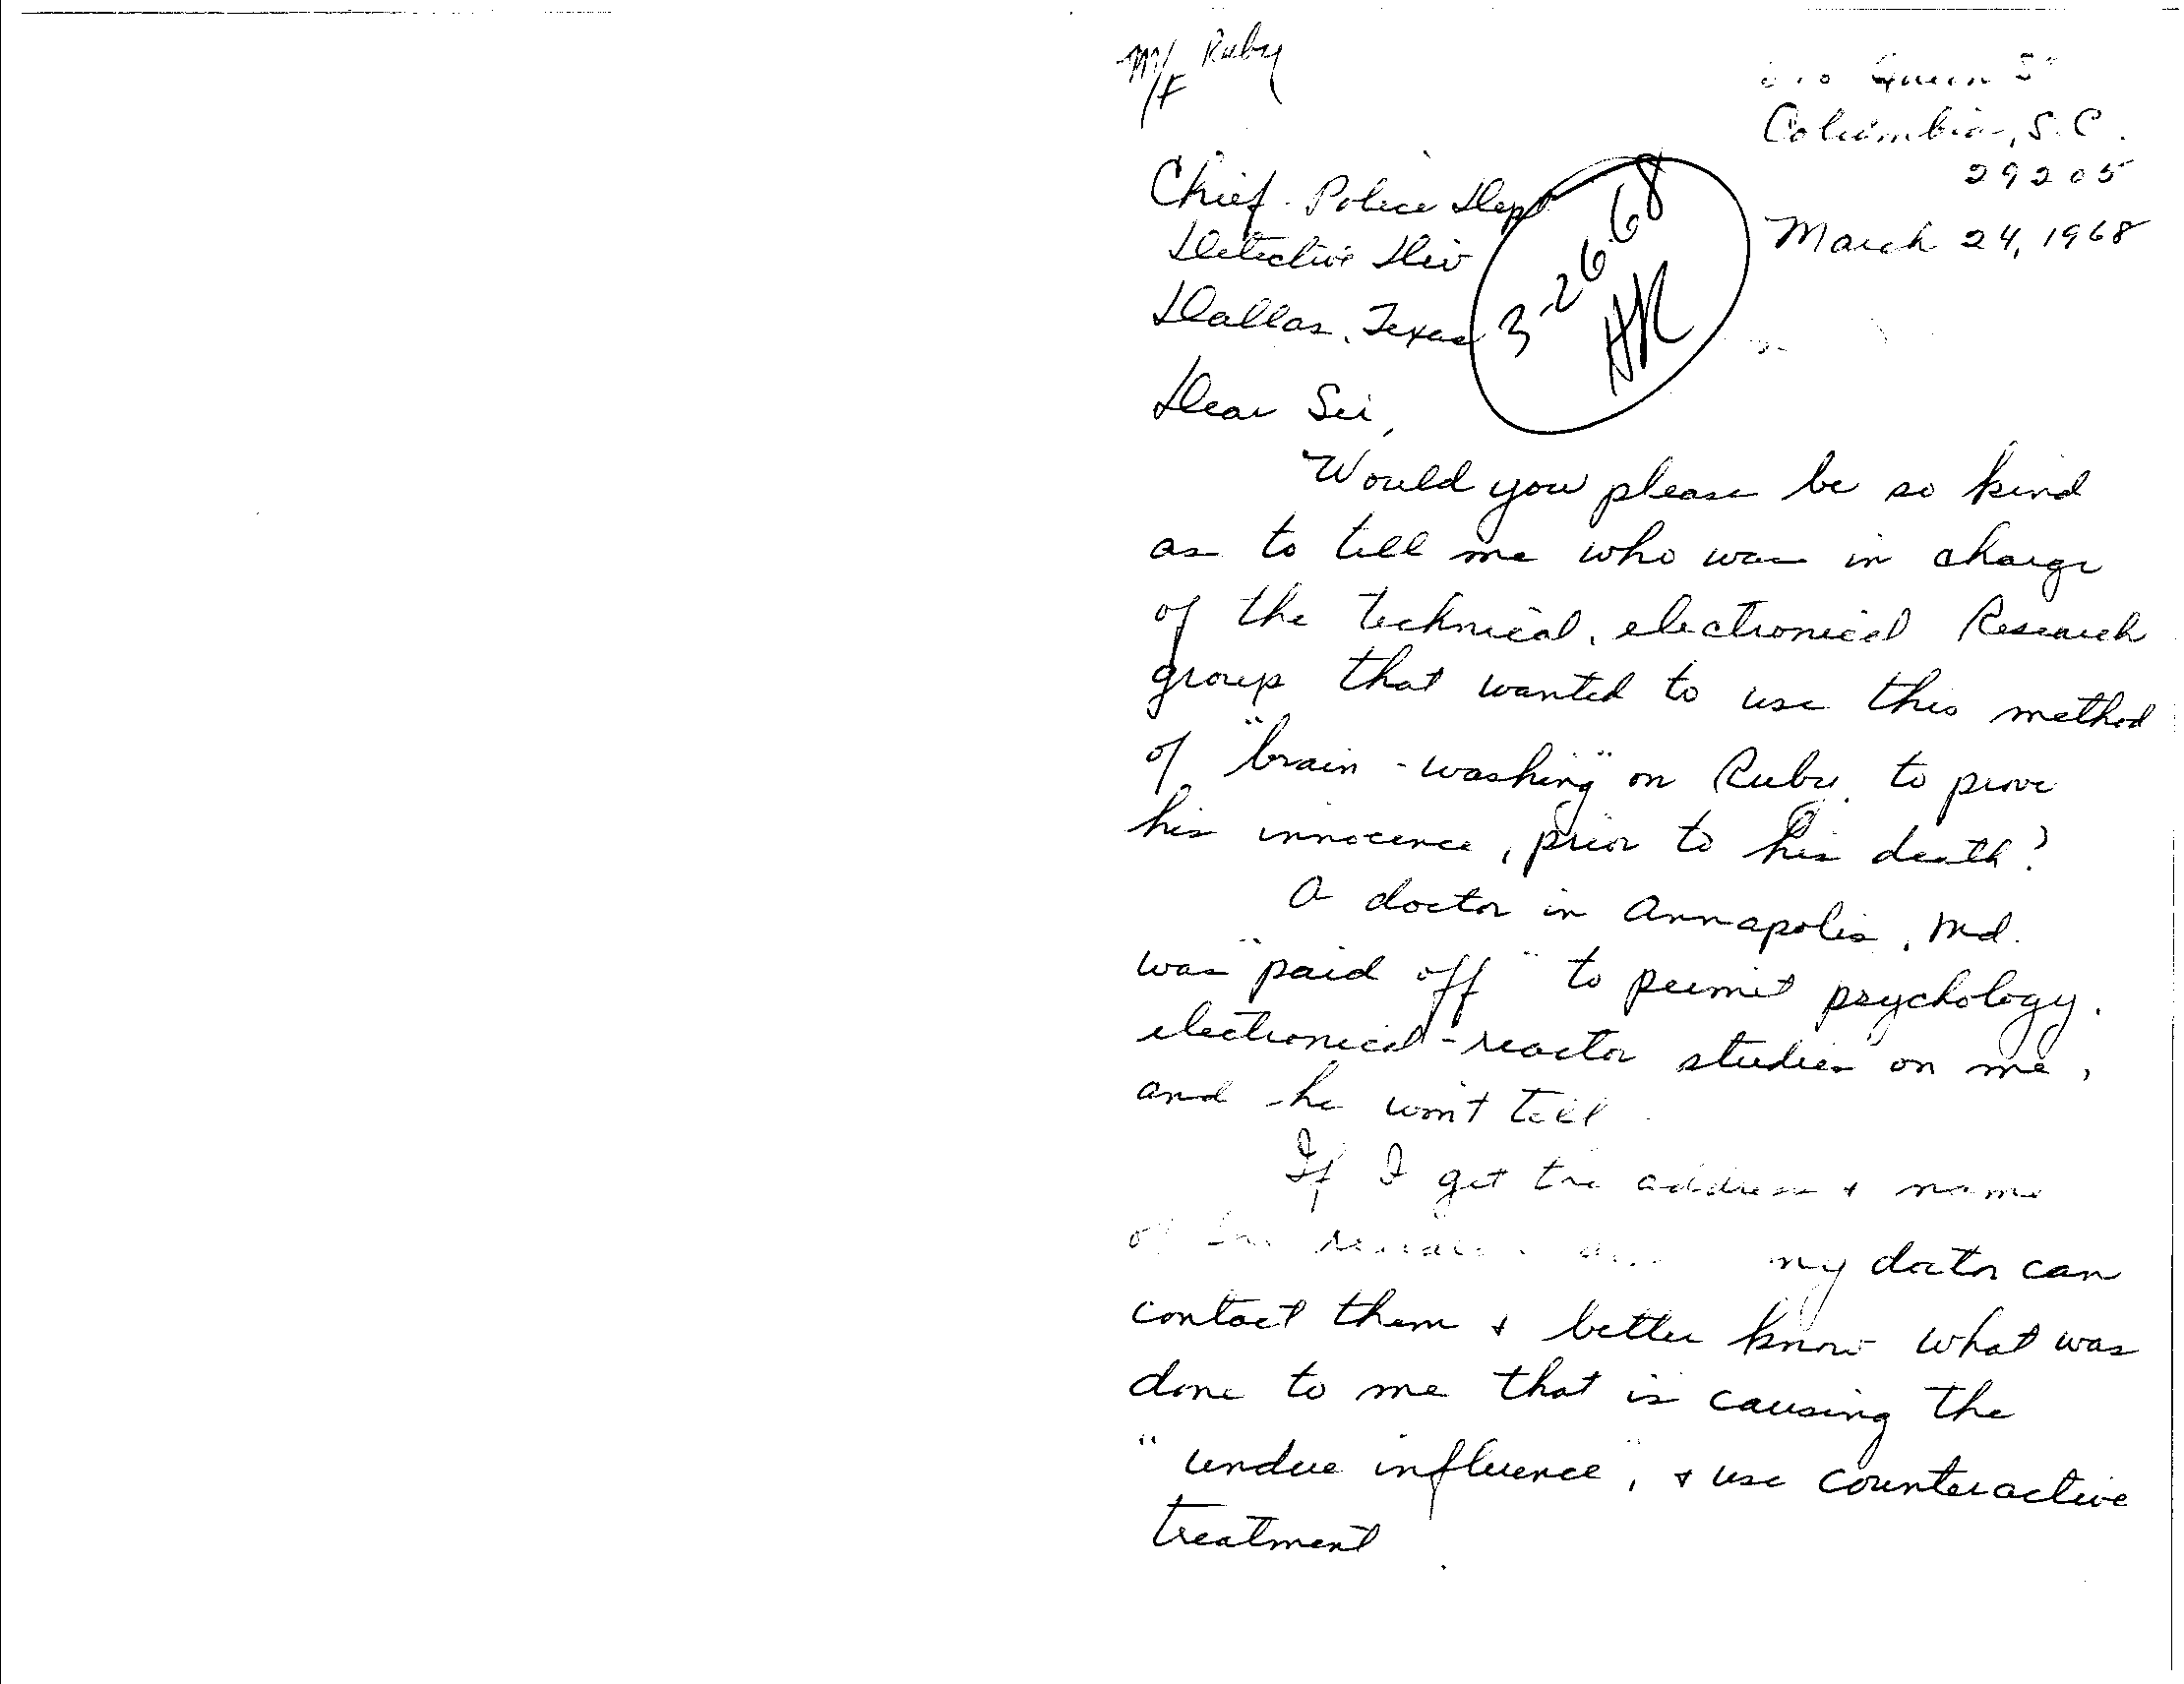 M/F Ruby
Queen St
Columbia, S.C.
29205
March 24, 1968
Chief. Police Dept
Detective Div
Dallas, Texas
3-26-68
HR
Dear Sir,
Would you please be so kind
as to tell me who was in charge
of the technical, electronical Research
group that wanted to use this method
of "brain-washing" on Ruby, to prove
his innocence, prior to his death?
A doctor in Annapolis, Md.
was "paid off" to permit psychology.
electronical-reactor studies on me,
and he won't tell.
If I get the address & name
of the my doctor can
contact them & better know what was
done to me that is causing the
"undue influence", & use counteractive
treatment.